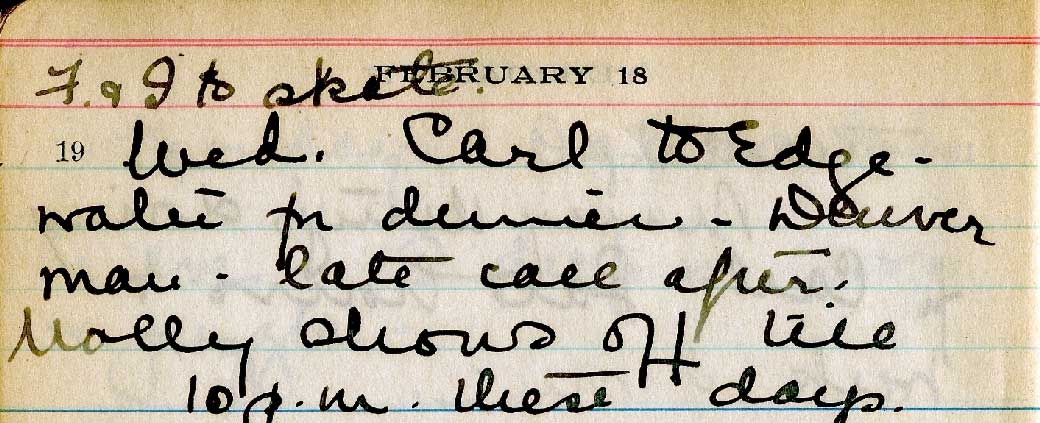 FEBRUARY 18
F. & I to skate.
19 Wed. Carl to Edge-
water for dinner - Denver
man - late call after.
Molly shows off till
10 p.m. these days.